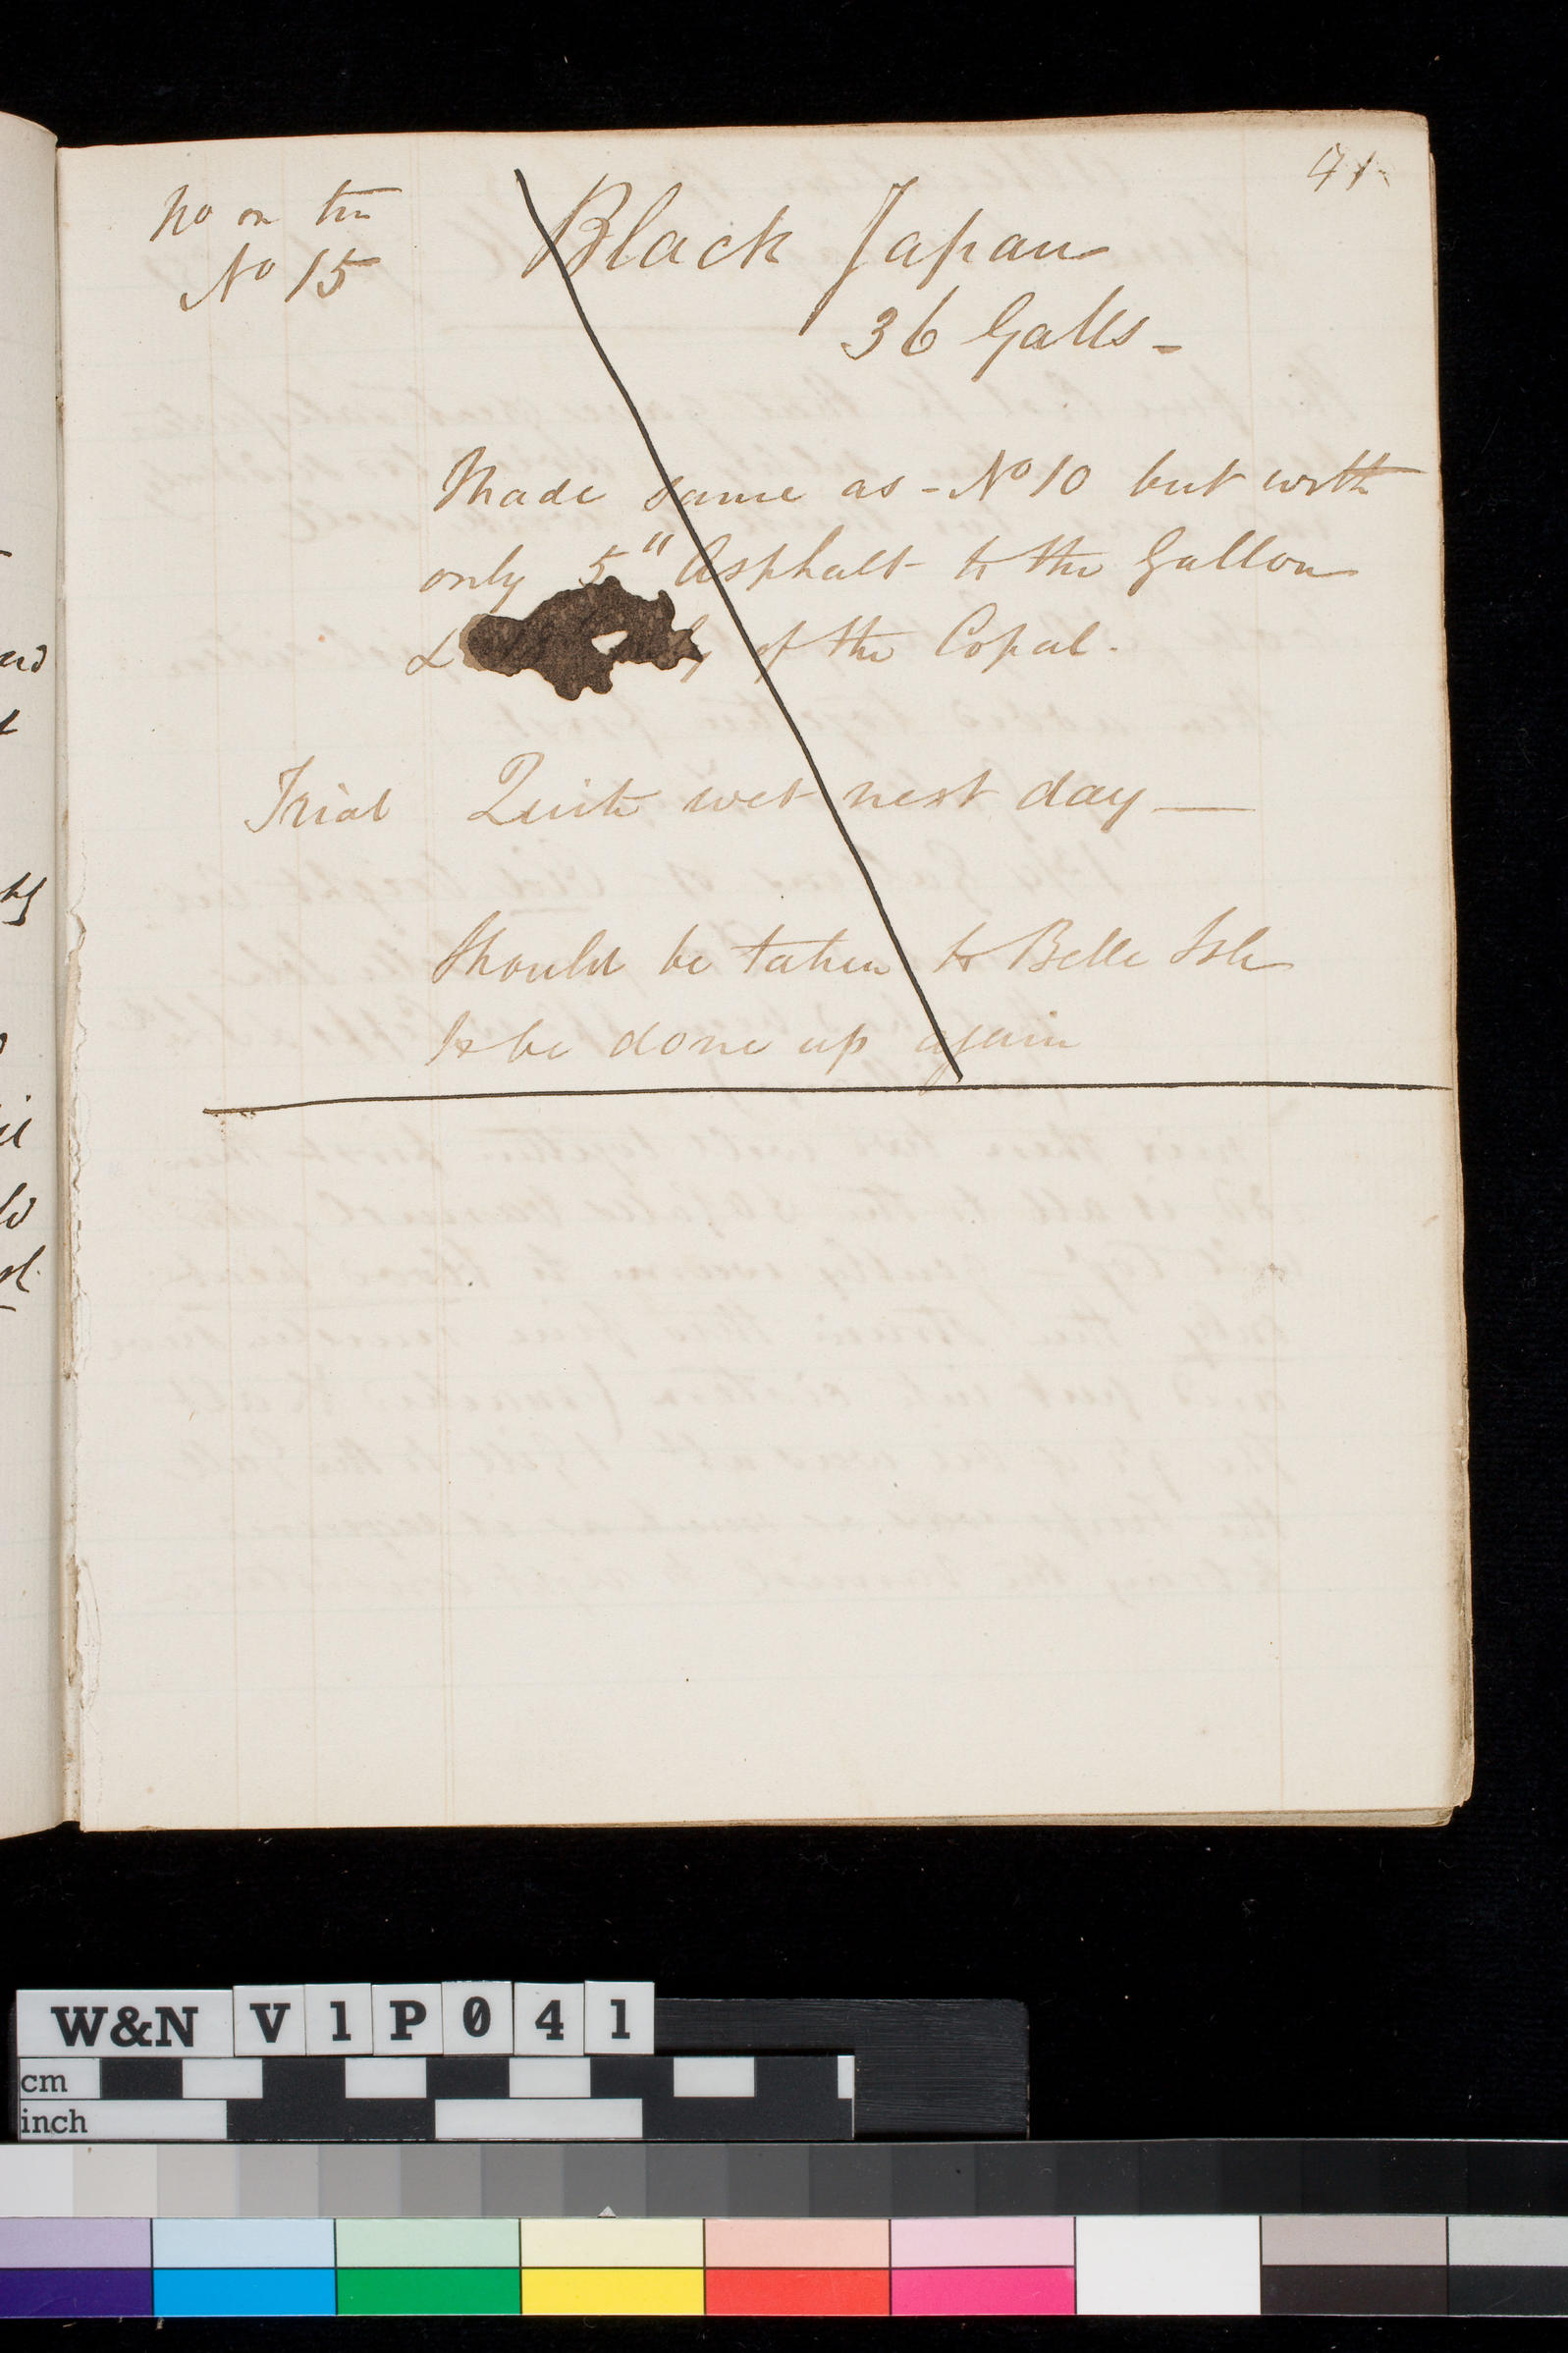 41
No on tin
No 15
Black Japan
36 Galls -
Made same as - No 10 but with
only 5" Asphalt to the Gallon
& of the Copal.
Trial Quite wet next day —
Should be taken to Belle Isle
to be done up again
W&N V1P041
cm
inch